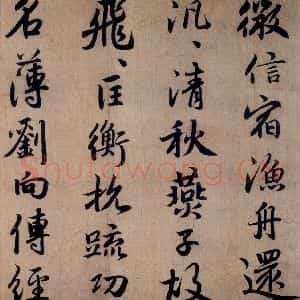 微信宿漁舟還
汎〻清秋燕子故
飛〻匡衡抗疏功
名薄劉向傳經